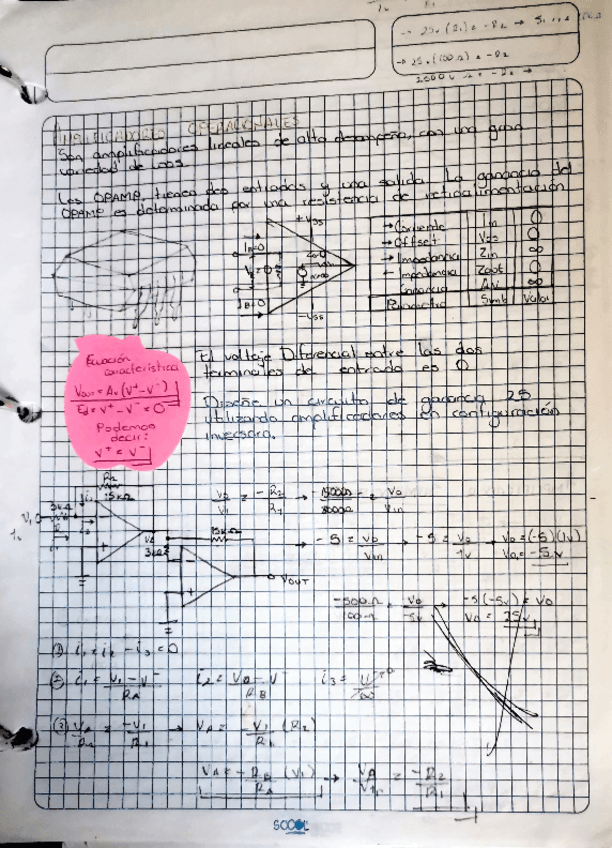 → 25v (R1) = -R2 →
→ 25v (100Ω) = -R2
AMPLIFICADORES OPERACIONALES
Son amplificadores lineales de alto desempeño, con una gran
variedad de usos.
Los OPAMP tienen dos entradas y una salida. La ganancia del
OPAMP es determinada por una resistencia de retroalimentación
+Vss
In=0
IB=0
-Vss
→ Corriente Iin 0
→ Offset Vos 0
→ Impedancia Zin ∞
← Impedancia Zout 0
Ganancia Av ∞
Parametro Simb Valor
Ecuación
característica
Vout = Av (V+ - V-)
Ed = V+ - V- = 0
Podemos
decir:
V+ = V-
El voltaje Diferencial entre las dos
terminales de entrada es 0
Diseñe un circuito de ganancia 25
utilizando amplificadores en configuración
inversora.
R2
15kΩ
3kΩ
V1
i1
i2
VA
3kΩ
15kΩ
VOUT
Vo/V1 = -R2/R1 → 15000/3000 = Vo/Vin
→ -5 = Vo/Vin → -5 = Vo/1v → Vo = (-5)(1v)
Vo = -5v
-500Ω/100Ω = Vo/-5v → -5(-5v) = Vo
Vo = 25v
① i1 = i2 - i3 = 0
② i1 = V1 - V-/RA i2 = VA - V-/RB i3 = V/∞ = 0
③ VA/R2 = -V1/R1 → VA = -V1/R1 (R2)
VA = -RB/RA (V1) → VA/Vin = -R2/R1
SCOOL